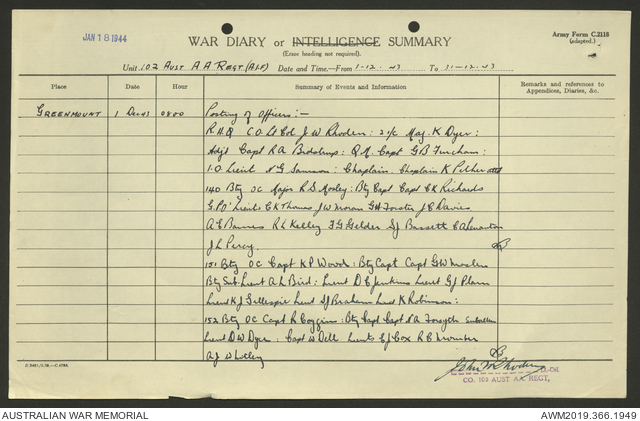 JAN 18 1944
Army Form C.2118
(adapted.)
WAR DIARY or INTELLIGENCE SUMMARY
(Erase heading not required).
Unit 102 AUST A A REGT (AIF) Date and Time.—From 1-12-43 To 31-12-43
Place Date Hour Summary of Events and Information Remarks and references to Appendices, Diaries, &c.
GREENMOUNT 1 Dec 43 0800 Posting of Officers:—
R.H.Q C.O. Lt Col J W Rhoden: 2 i/c Maj. K Dyer:
Adjt Capt R A : Q.M. Capt G B :
I.O. Lieut N G : Chaplain. Chaplain K att
140 Bty OC Major R S Mosley: Bty Capt Capt C K Richards
G.P.O' Lieuts C K Thomas J W Moran G H Forster J C Davies
A E Barnes R L Kelley F G Gelder S J Bassett C A
J L Percy.
151 Bty OC Capt K P Woods: Bty Capt Capt G W
Bty Sub Lieut A L Bird: Lieut D C Jenkins Lieut G J
Lieut K J Gillespie Lieut S J Lieut K Robinson:
152 Bty OC Capt R Coggins: Bty Capt Capt N A Forsyth Subaltern
Lieut D W Dyer: Capt W Dell Lieuts C J Cox R C
A J
John W Rhoden Lt-Col
CO. 102 AUST AA. REGT,
AUSTRALIAN WAR MEMORIAL
AWM2019.366.1949